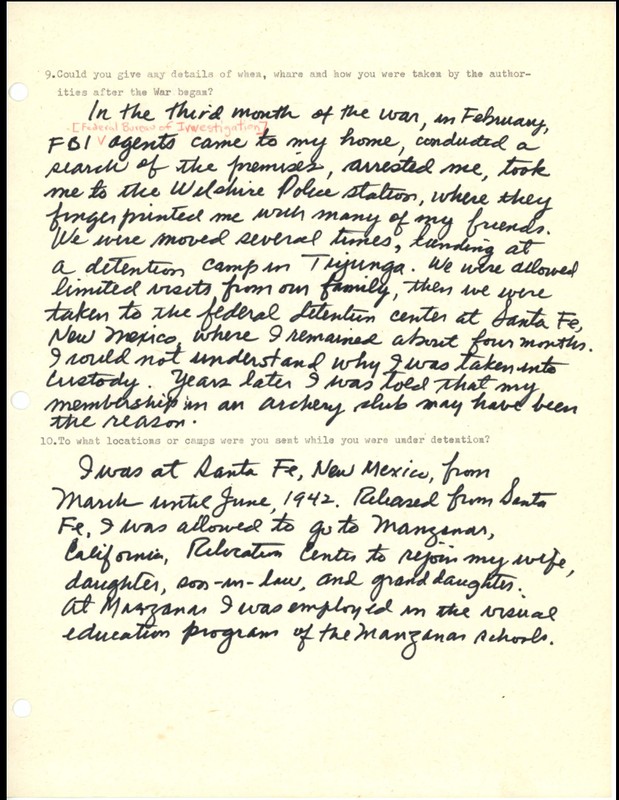 9.Could you give any details of when, where and how you were taken by the author-
ities after the War began?
In the third month of the war, in February,
[Federal Bureau of Investigation]
FBI V agents came to my home, conducted a
search of the premises, arrested me, took
me to the Wilshire Police station, where they
fingerprinted me with many of my friends.
We were moved several times, landing at
a detention camp in Tujunga. We were allowed
limited visits from our family, then we were
taken to the federal detention center at Santa Fe,
New Mexico, where I remained about four months.
I could not understand why I was taken into
custody. Years later I was told that my
membership in an archery club may have been
the reason.
10.To what locations or camps were you sent while you were under detention?
I was at Santa Fe, New Mexico, from
March until June, 1942. Released from Santa
Fe, I was allowed to go to Manzanar,
California, Relocation Center to rejoin my wife,
daughter, son-in-law, and granddaughter.
At Manzanar I was employed in the visual
education program of the Manzanar schools.